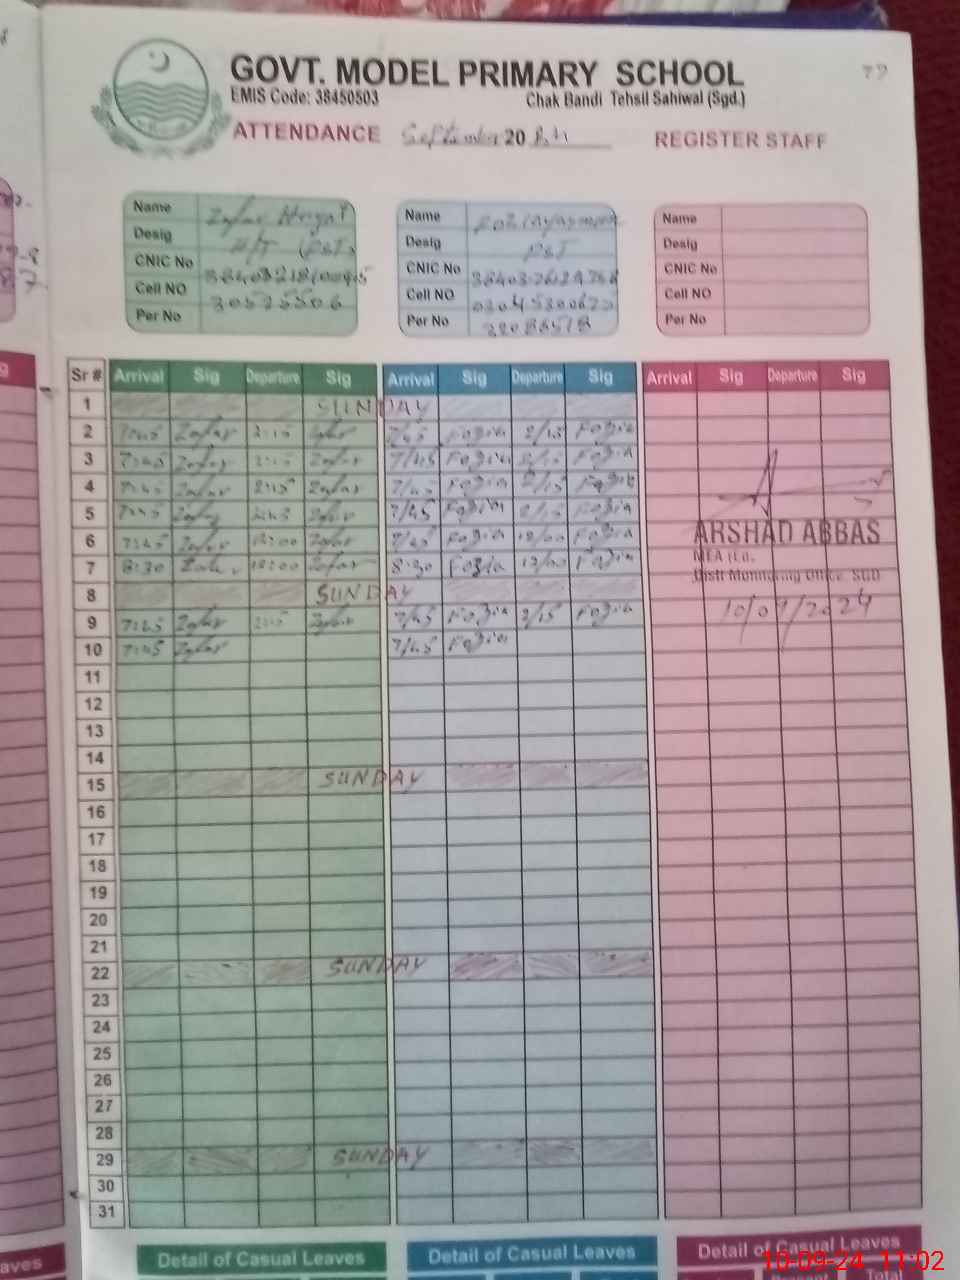 79
GOVT. MODEL PRIMARY SCHOOL
EMIS Code: 38450503 Chak Bandi Tehsil Sahiwal (Sgd.)
ATTENDANCE September 20 24 REGISTER STAFF
Name Zafar
Desig H/T (PST)
CNIC No
Cell NO
Per No
Name
Desig PST
CNIC No
Cell NO
Per No
Name
Desig
CNIC No
Cell NO
Per No
Sr # Arrival Sig Departure Sig Arrival Sig Departure Sig Arrival Sig Departure Sig
1 SUNDAY
2 7:45 Zafar 2:15 Zafar 7/45 Fozia 2/15 Fozia
3 7:45 Zafar 2:15 Zafar 7/45 Fozia 2/15 Fozia
4 7:45 Zafar 2:15 Zafar 7/45 Fozia 2/15 Fozia
5 7:45 Zafar Zafar 7/45 Fozia 2/15 Fozia
6 7:45 Zafar 12:00 Zafar 7/45 Fozia 12/00 Fozia
7 8:30 Zafar 12:00 Zafar 8:30 Fozia 12/00 Fozia
8 SUNDAY
9 7:45 Zafar 2:15 Zafar 7/45 Fozia 2/15 Fozia
10 7:45 Zafar 7/45 Fozia
11
12
13
14
15 SUNDAY
16
17
18
19
20
21
22 SUNDAY
23
24
25
26
27
28
29 SUNDAY
30
31
ARSHAD ABBAS
MEA
Distt Monitoring Office, SGD
10/09/2024
Detail of Casual Leaves Detail of Casual Leaves Detail of Casual Leaves
10-09-24 11:02